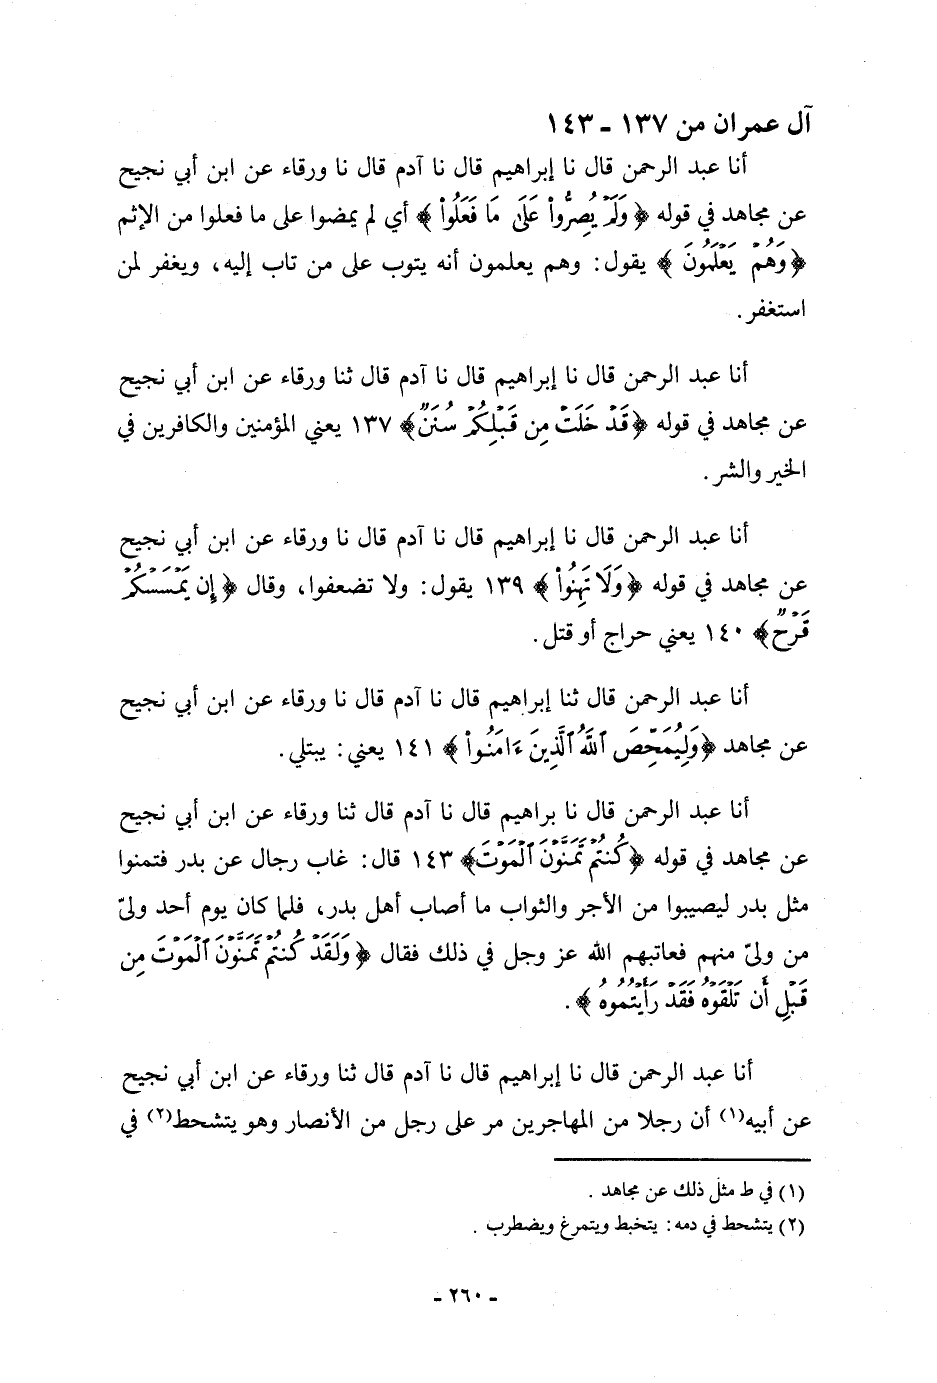 آل عمران من ١٣٧ ـ ١٤٣
أنا عبد الرحمن قال نا إبراهيم قال نا آدم قال نا ورقاء عن ابن أبي نجيح
عن مجاهد في قوله ﴿وَلَمْ يُصِرُّوا۟ عَلَىٰ مَا فَعَلُوا۟﴾ أي لم يمضوا على ما فعلوا من الإثم
﴿وَهُمْ يَعْلَمُونَ﴾ يقول: وهم يعلمون أنه يتوب على من تاب إليه، ويغفر لمن
استغفر.
أنا عبد الرحمن قال نا إبراهيم قال نا آدم قال ثنا ورقاء عن ابن أبي نجيح
عن مجاهد في قوله ﴿قَدْ خَلَتْ مِن قَبْلِكُمْ سُنَنٌ﴾ ١٣٧ يعني المؤمنين والكافرين في
الخير والشر.
أنا عبد الرحمن قال نا إبراهيم قال نا آدم قال نا ورقاء عن ابن أبي نجيح
عن مجاهد في قوله ﴿وَلَا تَهِنُوا۟﴾ ١٣٩ يقول: ولا تضعفوا، وقال ﴿إِن يَمْسَسْكُمْ
قَرْحٌ﴾ ١٤٠ يعني حراج أو قتل.
أنا عبد الرحمن قال ثنا إبراهيم قال نا آدم قال نا ورقاء عن ابن أبي نجيح
عن مجاهد ﴿وَلِيُمَحِّصَ ٱللَّهُ ٱلَّذِينَ ءَامَنُوا۟﴾ ١٤١ يعني: يبتلي.
أنا عبد الرحمن قال نا براهيم قال نا آدم قال ثنا ورقاء عن ابن أبي نجيح
عن مجاهد في قوله ﴿كُنتُمْ تَمَنَّوْنَ ٱلْمَوْتَ﴾ ١٤٣ قال: غاب رجال عن بدر فتمنوا
مثل بدر ليصيبوا من الأجر والثواب ما أصاب أهل بدر، فلما كان يوم أحد ولىّ
من ولىّ منهم فعاتبهم الله عز وجل في ذلك فقال ﴿وَلَقَدْ كُنتُمْ تَمَنَّوْنَ ٱلْمَوْتَ مِن
قَبْلِ أَن تَلْقَوْهُ فَقَدْ رَأَيْتُمُوهُ﴾.
أنا عبد الرحمن قال نا إبراهيم قال نا آدم قال ثنا ورقاء عن ابن أبي نجيح
عن أبيه(١) أن رجلا من المهاجرين مر على رجل من الأنصار وهو يتشحط(٢) في
(١) في ط مثل ذلك عن مجاهد .
(٢) يتشحط في دمه: يتخبط ويتمرغ ويضطرب .
ـ ٢٦٠ ـ